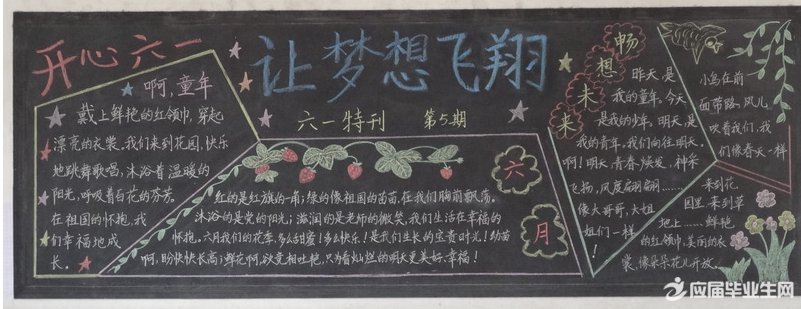 开心六一
让梦想飞翔
六一特刊 第5期
啊,童年
戴上鲜艳的红领巾,穿起
漂亮的衣裳。我们来到花园,快乐
地跳舞歌唱,沐浴着温暖的
阳光,呼吸着百花的芬芳。
在祖国的怀抱,我
们幸福地成
长。
六月
红的是红旗的一角;绿的像祖国的苗苗,在我们胸前飘荡。
沐浴的是党的阳光;滋润的是老师的微笑,我们生活在幸福的
怀抱。六月我们的花季,多么甜蜜!多么快乐!是我们生长的宝贵时光!幼苗
啊,盼快快长高;鲜花啊,欲竞相吐艳,只为着灿烂的明天更美好、幸福!
畅想未来
昨天,是
我的童年,今天
是我的少年,明天,是
我的青年,我们向往明天。
啊!明天,青春焕发,神采
飞扬,风度翩翩……
像大哥哥,大姐
姐们一样
!
小鸟在前
面带路,风儿
吹着我们,我
们像春天一样
来到花
园里,来到草
地上……鲜艳
的红领巾,美丽的衣
裳,像朵朵花儿开放。
应届毕业生网